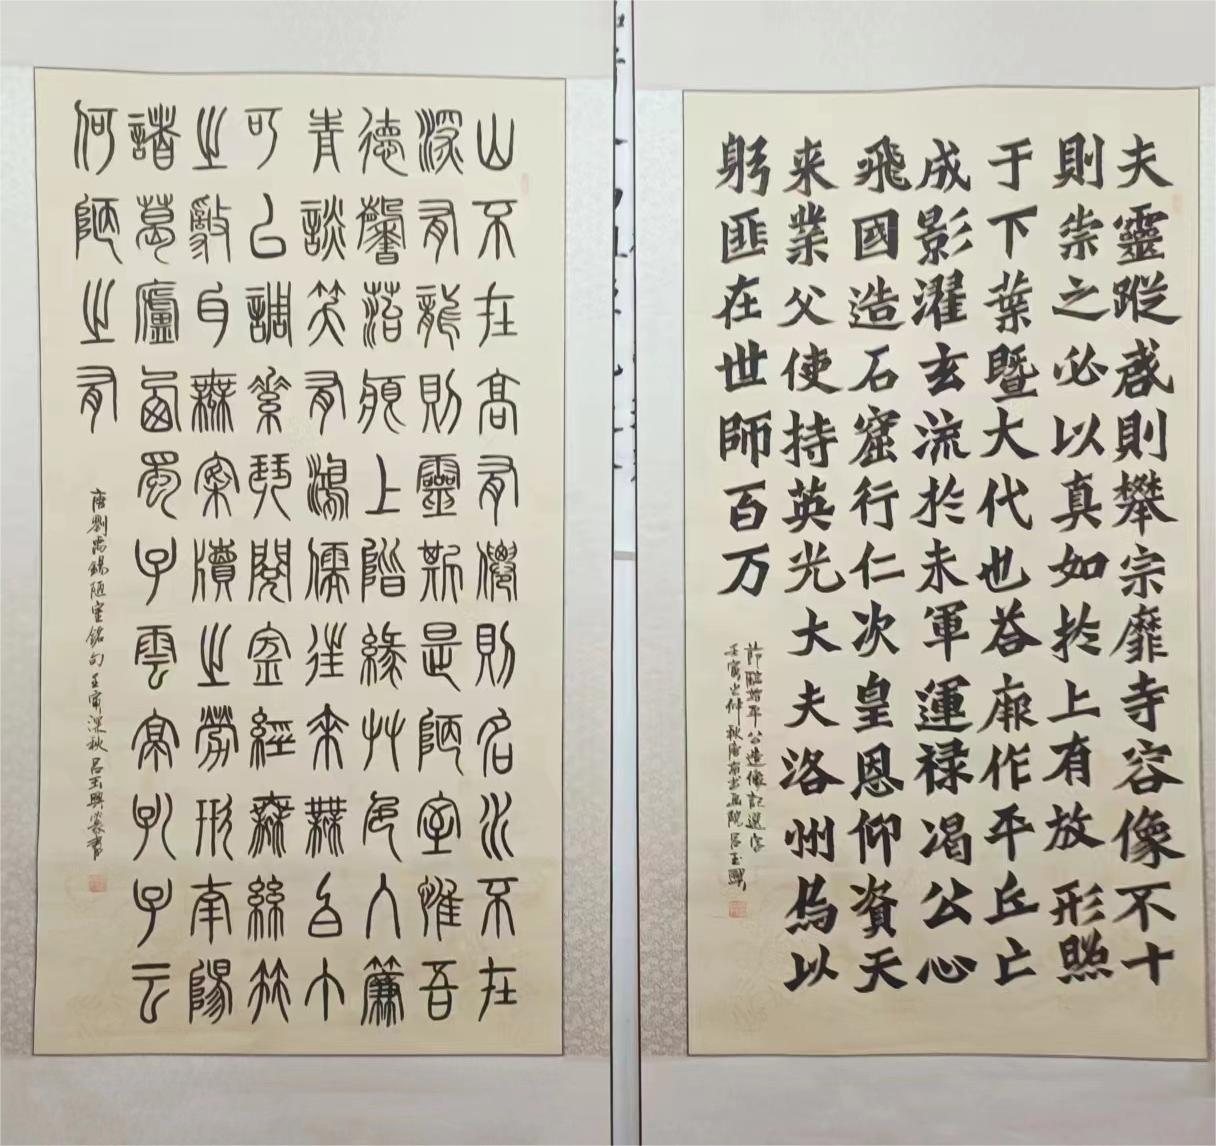 夫靈蹤則攀宗靡寺容像不十
則崇之必以真如於上有放形照
于下葉暨大代也苔廊作平丘亡
成影濯玄流於未軍運禄渴公心
飛國造石窟行仁次皇恩仰資天
来業父使持英光大夫洛州為以
躬匪在世師百万
節臨始平公造像記選字
壬寅之仲秋南書画院吕玉興
山不在高有僊則名水不在
深有龍則靈斯是陋室惟吾
德馨苔痕上階緣艸色入簾
青談笑有鴻儒往來無白丁
可以調素琴閱金經無絲竹
之亂耳無案牘之勞形南陽
諸葛廬西蜀子雲亭孔子云
何陋之有
唐劉禹錫陋室銘句壬寅深秋吕玉興篆書